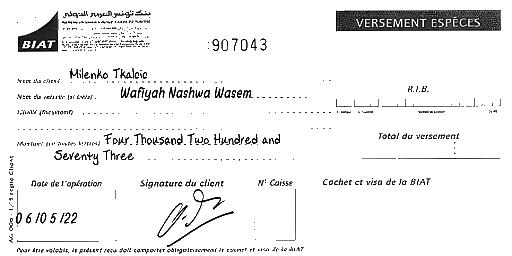 بنك تونس العربي الدولي
BIAT
907043
VERSEMENT ESPÈCES
Nom du client Milenko Tkalcic
Nom du verseur (si tiers) Wafiyah Nashwa Wasem
R.I.B.
Libellé (facultatif)
Montant (en toutes lettres) Four Thousand Two Hundred and
Seventy Three
Total du versement
Date de l'opération Signature du client N° Caisse Cachet et visa de la BIAT
06/05/22
Pour être valable, le présent reçu doit comporter obligatoirement le cachet et visa de la BIAT